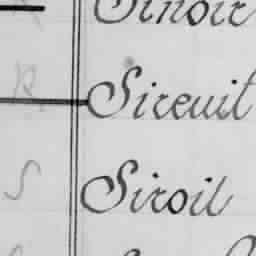 Sinoir
Sireuil
S Siroil